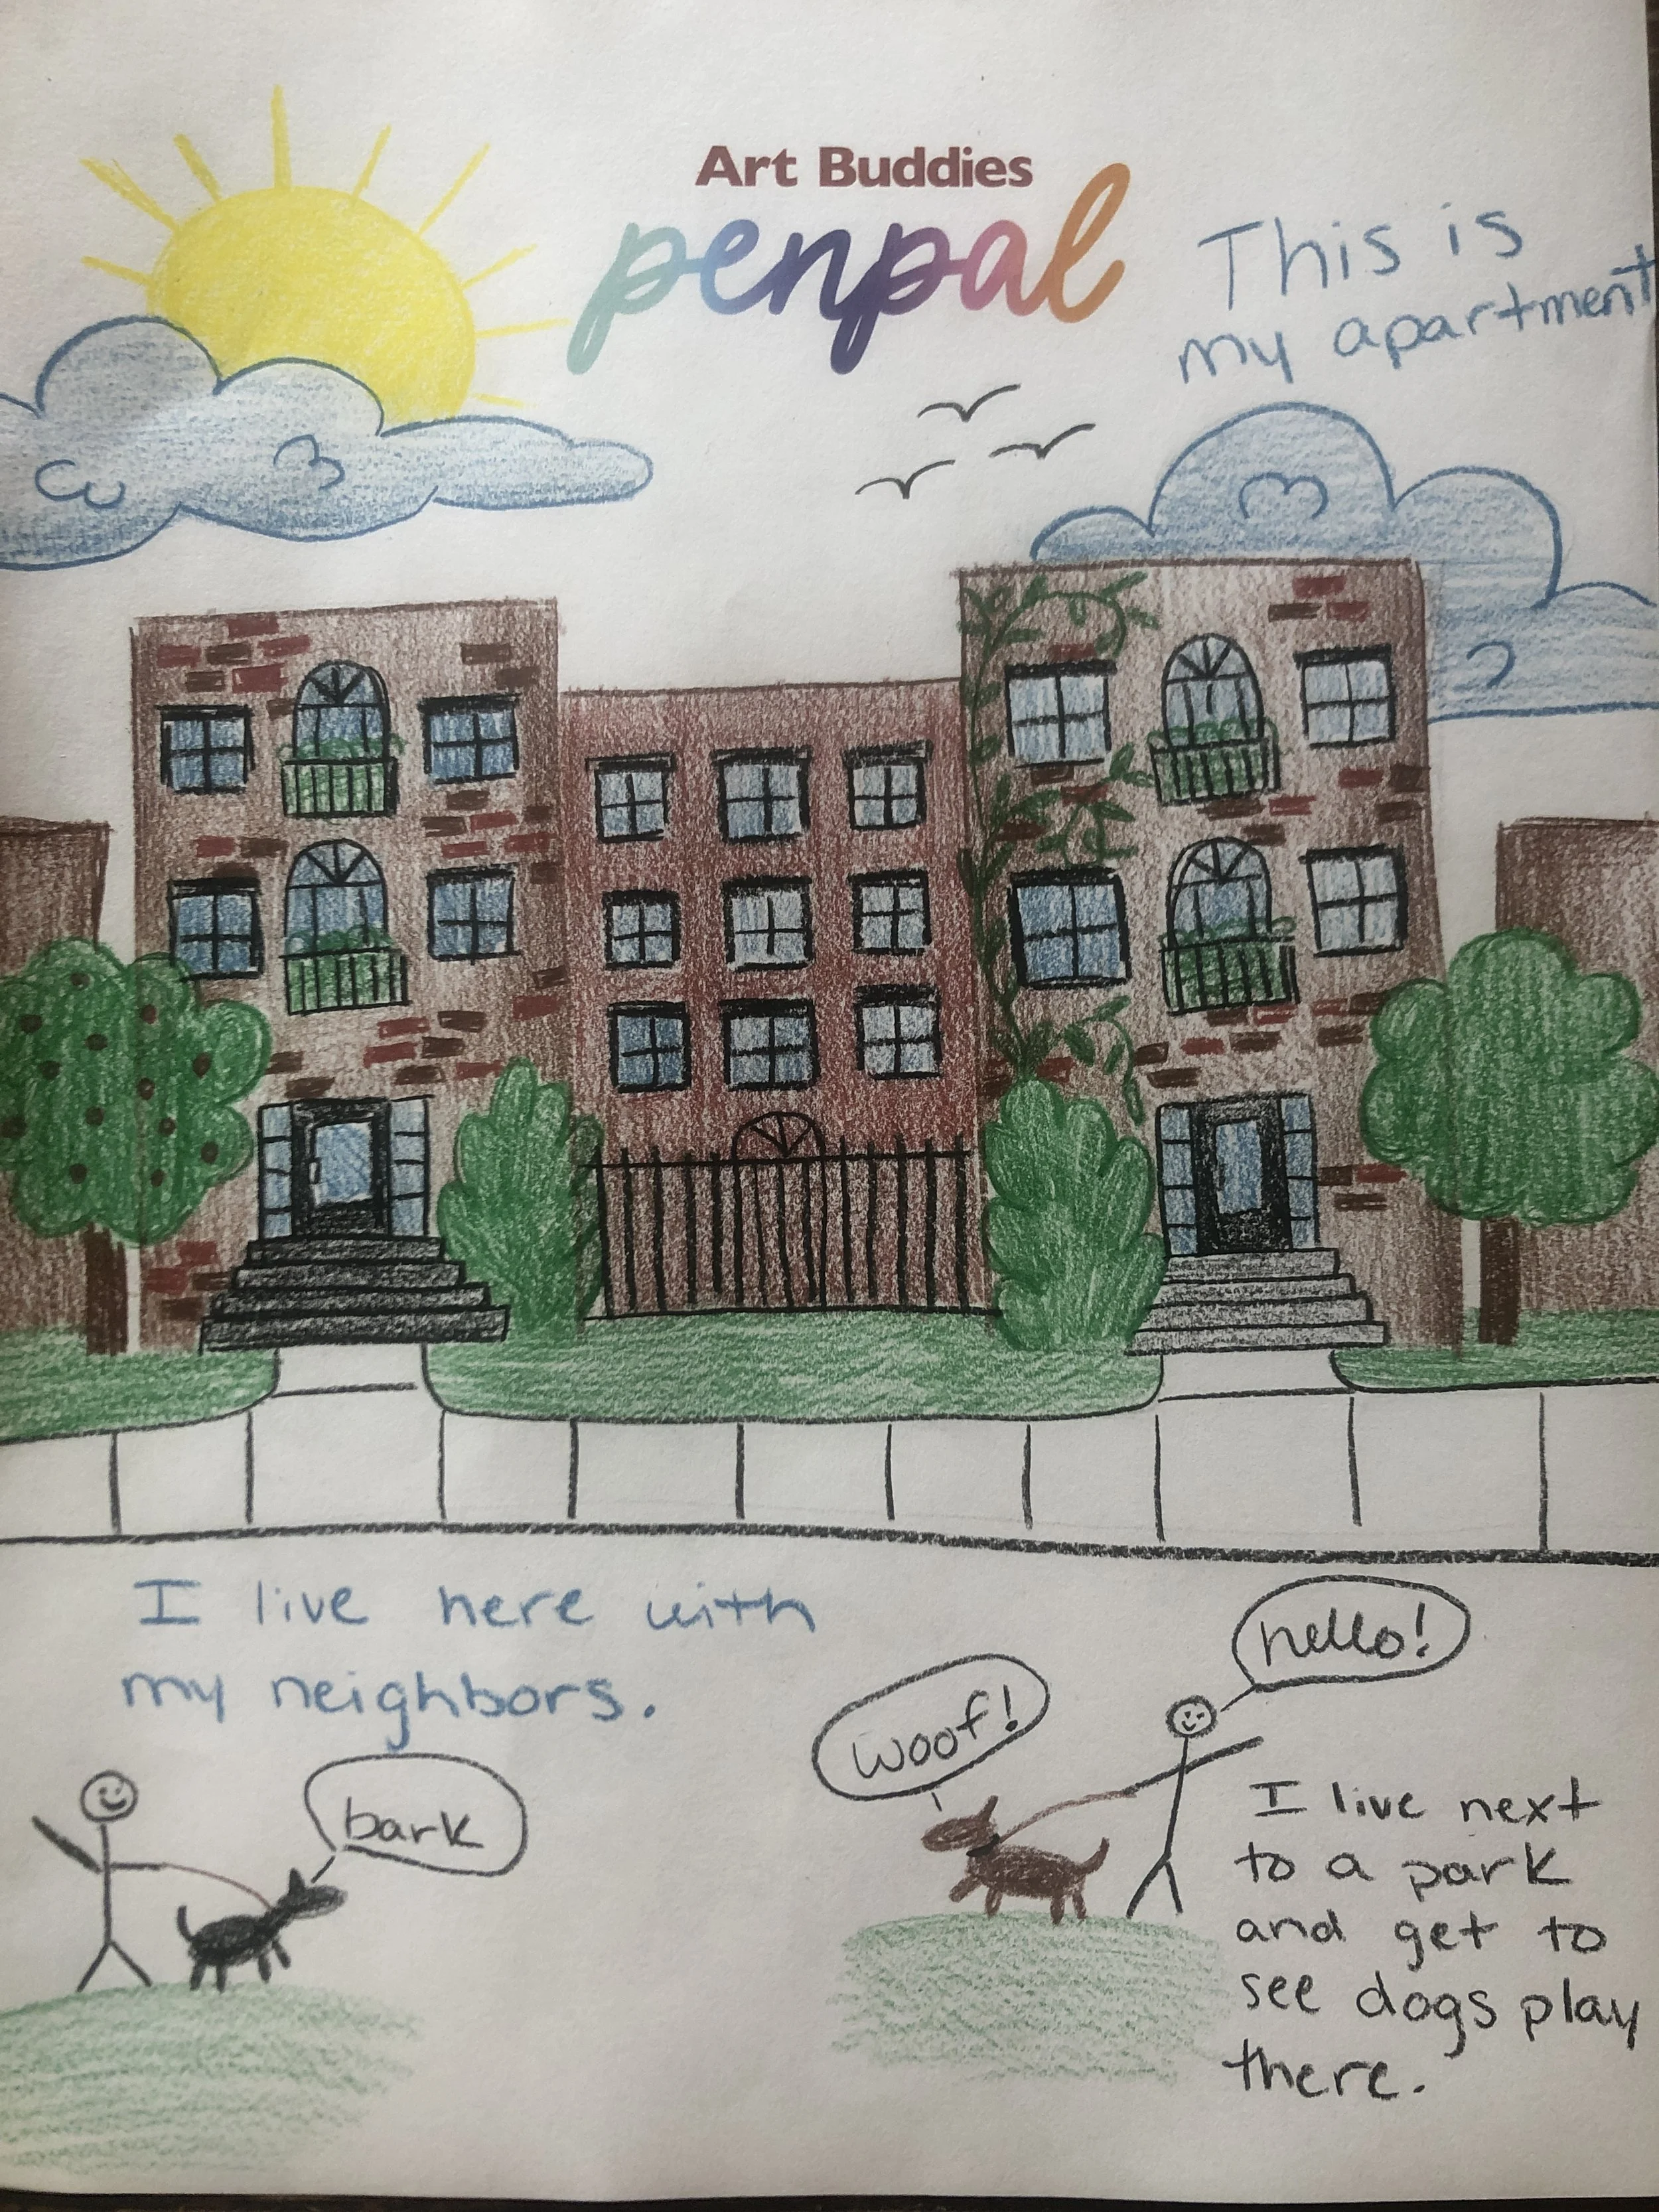 Art Buddies
penpal
This is
my apartment
I live here with
my neighbors.
hello!
woof!
bark
I live next
to a park
and get to
see dogs play
there.